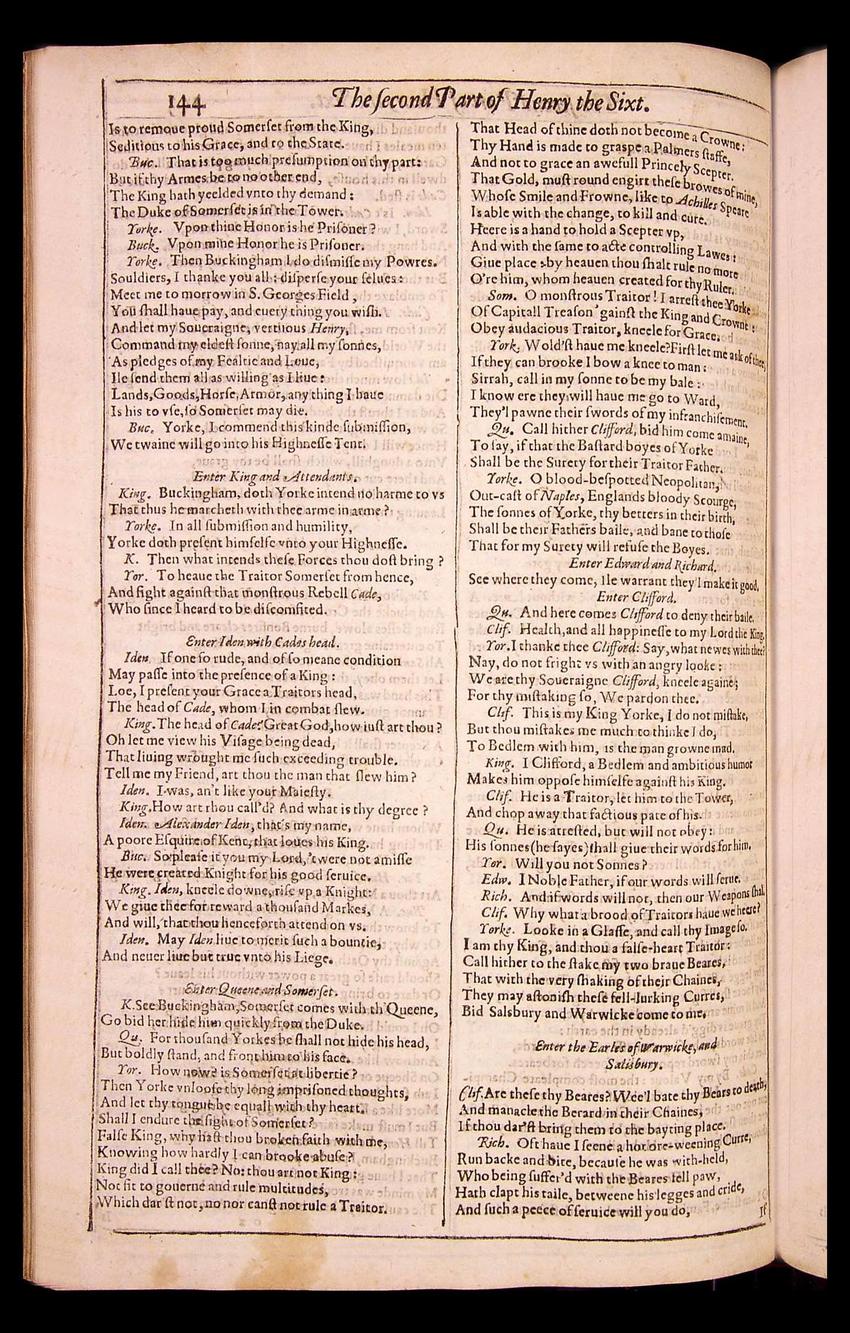 144
The ſecond Part of Henry the Sixt.
Is to remoue proud Somerſet from the King,
Seditious to his Grace, and to the State.
Buc. That is too much preſumption on thy part:
But if thy Armes be to no other end,
The King hath yeelded vnto thy demand:
The Duke of Somerſet is in the Tower.
Yorke. Vpon thine Honor is he Priſoner?
Buck. Vpon mine Honor he is Priſoner.
Yorke. Then Buckingham I do diſmiſſe my Powres.
Souldiers, I thanke you all: diſperſe your ſelues:
Meet me to morrow in S. Georges Field,
You ſhall haue pay, and euery thing you wiſh.
And let my Soueraigne, vertuous Henry,
Command my eldeſt ſonne, nay all my ſonnes,
As pledges of my Fealtie and Loue,
Ile ſend them all as willing as I liue:
Lands, Goods, Horſe, Armor, any thing I haue
Is his to vſe, ſo Somerſet may die.
Buc. Yorke, I commend this kinde ſubmiſſion,
We twaine will go into his Highneſſe Tent.
Enter King and Attendants.
King. Buckingham, doth Yorke intend no harme to vs
That thus he marcheth with thee arme in arme?
Yorke. In all ſubmiſſion and humility,
Yorke doth preſent himſelfe vnto your Highneſſe.
K. Then what intends theſe Forces thou doſt bring?
Yor. To heaue the Traitor Somerſet from hence,
And fight againſt that monſtrous Rebell Cade,
Who ſince I heard to be diſcomfited.
Enter Iden with Cades head.
Iden. If one ſo rude, and of ſo meane condition
May paſſe into the preſence of a King:
Loe, I preſent your Grace a Traitors head,
The head of Cade, whom I in combat ſlew.
King. The head of Cade? Great God, how iuſt art thou?
Oh let me view his Viſage being dead,
That liuing wrought me ſuch exceeding trouble.
Tell me my Friend, art thou the man that ſlew him?
Iden. I was, an't like your Maieſty.
King. How art thou call'd? And what is thy degree?
Iden. Alexander Iden, that's my name,
A poore Eſquire of Kent, that loues his King.
Buc. So pleaſe it you my Lord, 'twere not amiſſe
He were created Knight for his good ſeruice.
King. Iden, kneele downe, riſe vp a Knight:
We giue thee for reward a thouſand Markes,
And will, that thou henceforth attend on vs.
Iden. May Iden liue to merit ſuch a bountie,
And neuer liue but true vnto his Liege.
Enter Queene and Somerſet.
K. See Buckingham, Somerſet comes with th'Queene,
Go bid her hide him quickly from the Duke.
Qu. For thouſand Yorkes he ſhall not hide his head,
But boldly ſtand, and front him to his face.
Yor. How now? is Somerſet at libertie?
Then Yorke vnlooſe thy long impriſoned thoughts,
And let thy tongue be equall with thy heart.
Shall I endure the ſight of Somerſet?
Falſe King, why haſt thou broken faith with me,
Knowing how hardly I can brooke abuſe?
King did I call thee? No: thou art not King:
Not fit to gouerne and rule multitudes,
Which dar'ſt not, no nor canſt not rule a Traitor.
That Head of thine doth not become a Crowne:
Thy Hand is made to graspe a Palmers ſtaffe,
And not to grace an awefull Princely Scepter.
That Gold, muſt round engirt theſe browes of mine,
Whoſe Smile and Frowne, like to Achilles Speare
Is able with the change, to kill and cure.
Heere is a hand to hold a Scepter vp,
And with the ſame to acte controlling Lawes:
Giue place: by heauen thou ſhalt rule no more
O're him, whom heauen created for thy Ruler.
Som. O monſtrous Traitor! I arreſt thee Yorke
Of Capitall Treaſon 'gainſt the King and Crowne:
Obey audacious Traitor, kneele for Grace.
York. Wold'ſt haue me kneele? Firſt let me ask of thee,
If they can brooke I bow a knee to man:
Sirrah, call in my ſonne to be my bale:
I know ere they will haue me go to Ward,
They'l pawne their ſwords of my infranchiſement.
Qu. Call hither Clifford, bid him come amaine,
To ſay, if that the Baſtard boyes of Yorke
Shall be the Surety for their Traitor Father.
Yorke. O blood-beſpotted Neopolitan,
Out-caſt of Naples, Englands bloody Scourge,
The ſonnes of Yorke, thy betters in their birth,
Shall be their Fathers baile, and bane to thoſe
That for my Surety will refuſe the Boyes.
Enter Edward and Richard.
See where they come, Ile warrant they'l make it good,
Enter Clifford.
Qu. And here comes Clifford to deny their baile.
Clif. Health, and all happineſſe to my Lord the King.
Yor. I thanke thee Clifford: Say, what newes with thee?
Nay, do not fright vs with an angry looke:
We are thy Soueraigne Clifford, kneele againe;
For thy miſtaking ſo, We pardon thee.
Clif. This is my King Yorke, I do not miſtake,
But thou miſtakes me much to thinke I do,
To Bedlem with him, is the man growne mad.
King. I Clifford, a Bedlem and ambitious humor
Makes him oppoſe himſelfe againſt his King.
Clif. He is a Traitor, let him to the Tower,
And chop away that factious pate of his.
Qu. He is arreſted, but will not obey:
His ſonnes (he ſayes) ſhall giue their words for him.
Yor. Will you not Sonnes?
Edw. I Noble Father, if our words will ſerue.
Rich. And if words will not, then our Weapons ſhal.
Clif. Why what a brood of Traitors haue we heere?
Yorke. Looke in a Glaſſe, and call thy Image ſo.
I am thy King, and thou a falſe-heart Traitor:
Call hither to the ſtake my two braue Beares,
That with the very ſhaking of their Chaines,
They may aſtoniſh theſe fell-lurking Curres,
Bid Salsbury and Warwicke come to me.
Enter the Earles of Warwicke, and
Salisbury.
Clif. Are theſe thy Beares? Wee'l bate thy Bears to death,
And manacle the Berard in their Chaines,
If thou dar'ſt bring them to the bayting place.
Rich. Oft haue I ſeene a hot ore-weening Curre,
Run backe and bite, becauſe he was with-held,
Who being ſuffer'd with the Beares fell paw,
Hath clapt his taile, betweene his legges and cride,
And ſuch a peece of ſeruice will you do,
If